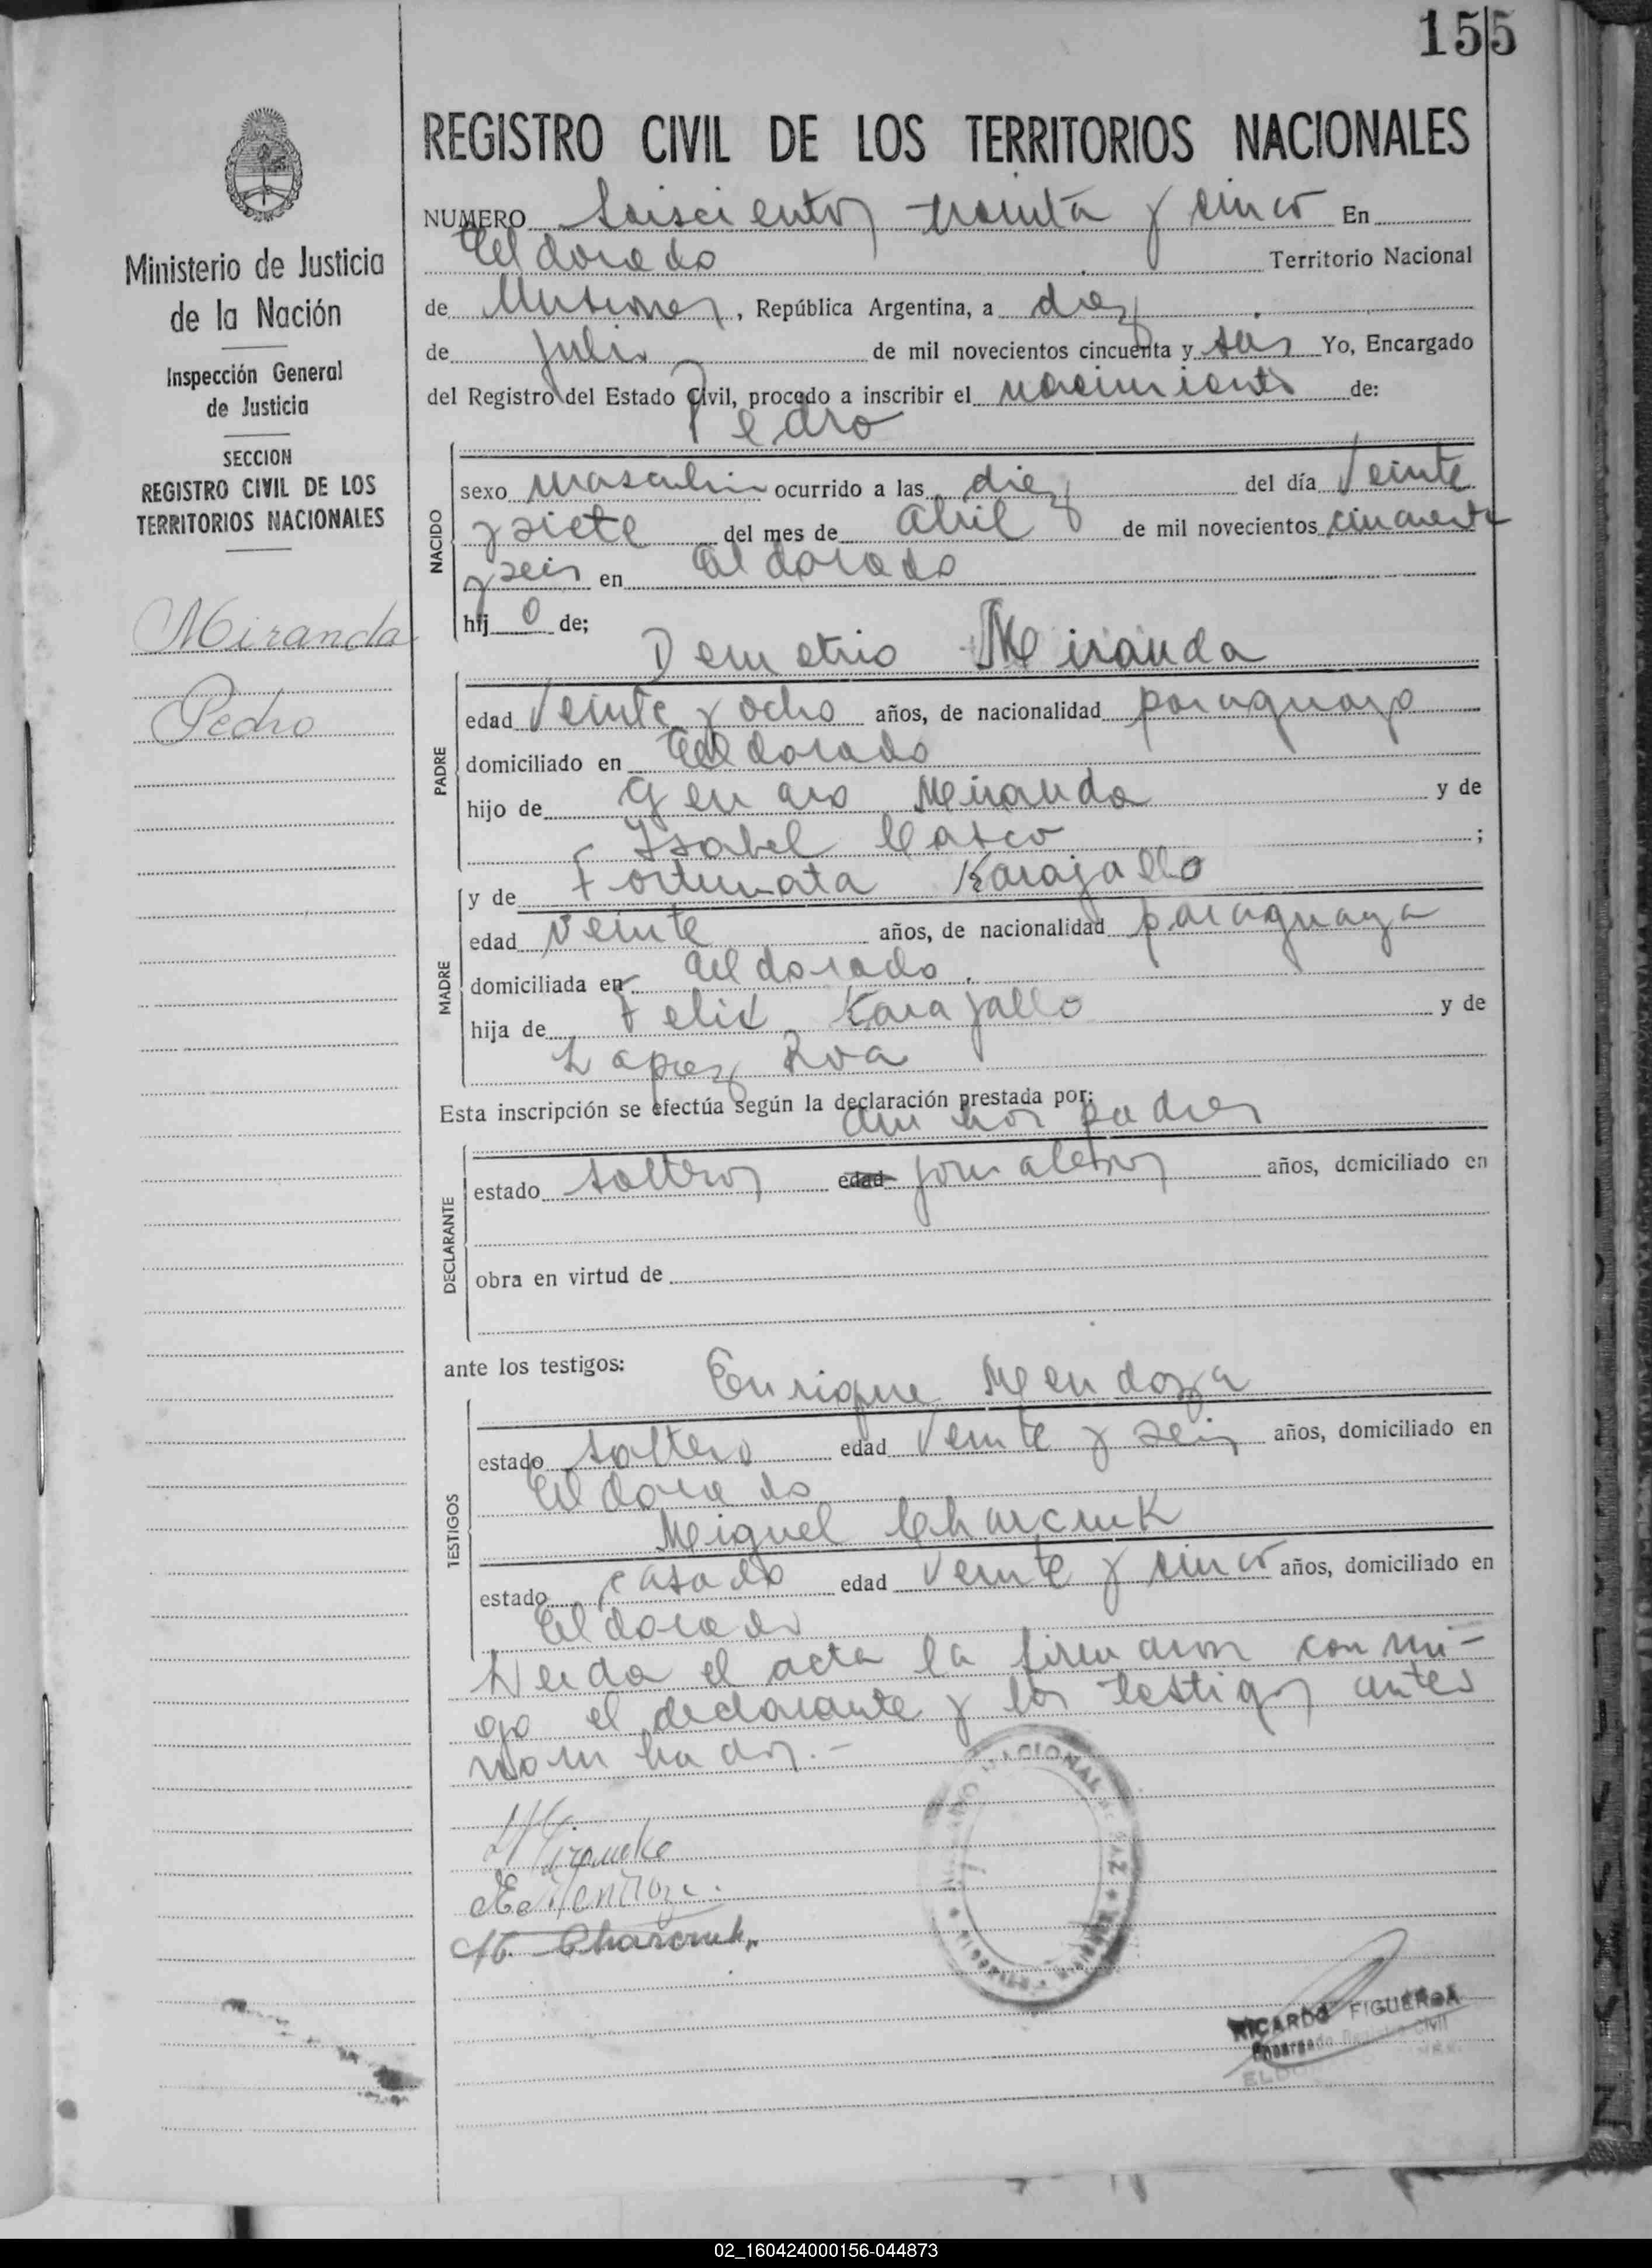 155
REGISTRO CIVIL DE LOS TERRITORIOS NACIONALES
Ministerio de Justicia
de la Nación
Inspección General
de Justicia
SECCION
REGISTRO CIVIL DE LOS
TERRITORIOS NACIONALES
Miranda
Pedro
NUMERO Seiscientos treinta y cinco En
Eldorado Territorio Nacional
de Misiones, República Argentina, a diez
de julio de mil novecientos cincuenta y seis Yo, Encargado
del Registro del Estado Civil, procedo a inscribir el nacimiento de:
Pedro
NACIDO
sexo masculino ocurrido a las diez del día veinte
y siete del mes de abril de mil novecientos cincuenta
y seis en Eldorado
hij o de;
Demetrio Miranda
PADRE
edad veinte y ocho años, de nacionalidad paraguayo
domiciliado en Eldorado
hijo de Genaro Miranda y de
Isabel Casco ;
y de Fortunata Karajallo
MADRE
edad veinte años, de nacionalidad paraguaya
domiciliada en Eldorado.
hija de Felix Karajallo y de
Lopez Roa
Esta inscripción se efectúa según la declaración prestada por:
ambos padres
DECLARANTE
estado solteros edad jornaleros años, domiciliado en
obra en virtud de
ante los testigos:
Enrique Mendoza
TESTIGOS
estado soltero edad veinte y seis años, domiciliado en
Eldorado
Miguel Charczuk
estado casado edad veinte y cinco años, domiciliado en
Eldorado
Leida el acta la firmaron conmi-
go el declarante y los testigos antes
nombrados.-
E. Mendoza.
M. Charczuk
RICARDO FIGUEROA
Encargado Registro Civil
02_160424000156-044873